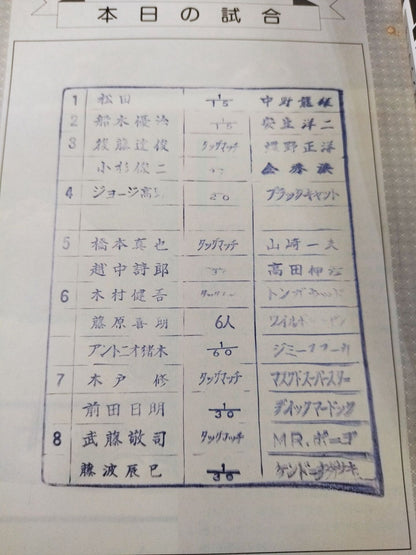 本日の試合
1 松田 1/15 中野龍雄
2 船木優治 1/15 安生洋二
3 後藤達俊 タッグマッチ 蝶野正洋
小杉俊二 金秀洪
4 ジョージ高 20 ブラックキャット
5 橋本真也 タッグマッチ 山崎一夫
越中詩郎 高田伸彦
6 木村健吾 トンガ
藤原喜明 6人 ワイルド
アントニオ猪木 1/60 ジミースヌーカ
7 木戸 修 タッグマッチ マスクドスーパースター
前田日明 1/30 ディックマードック
8 武藤敬司 タッグマッチ MR.ポーゴ
藤波辰巳 1/30 ケンドーナガサキ